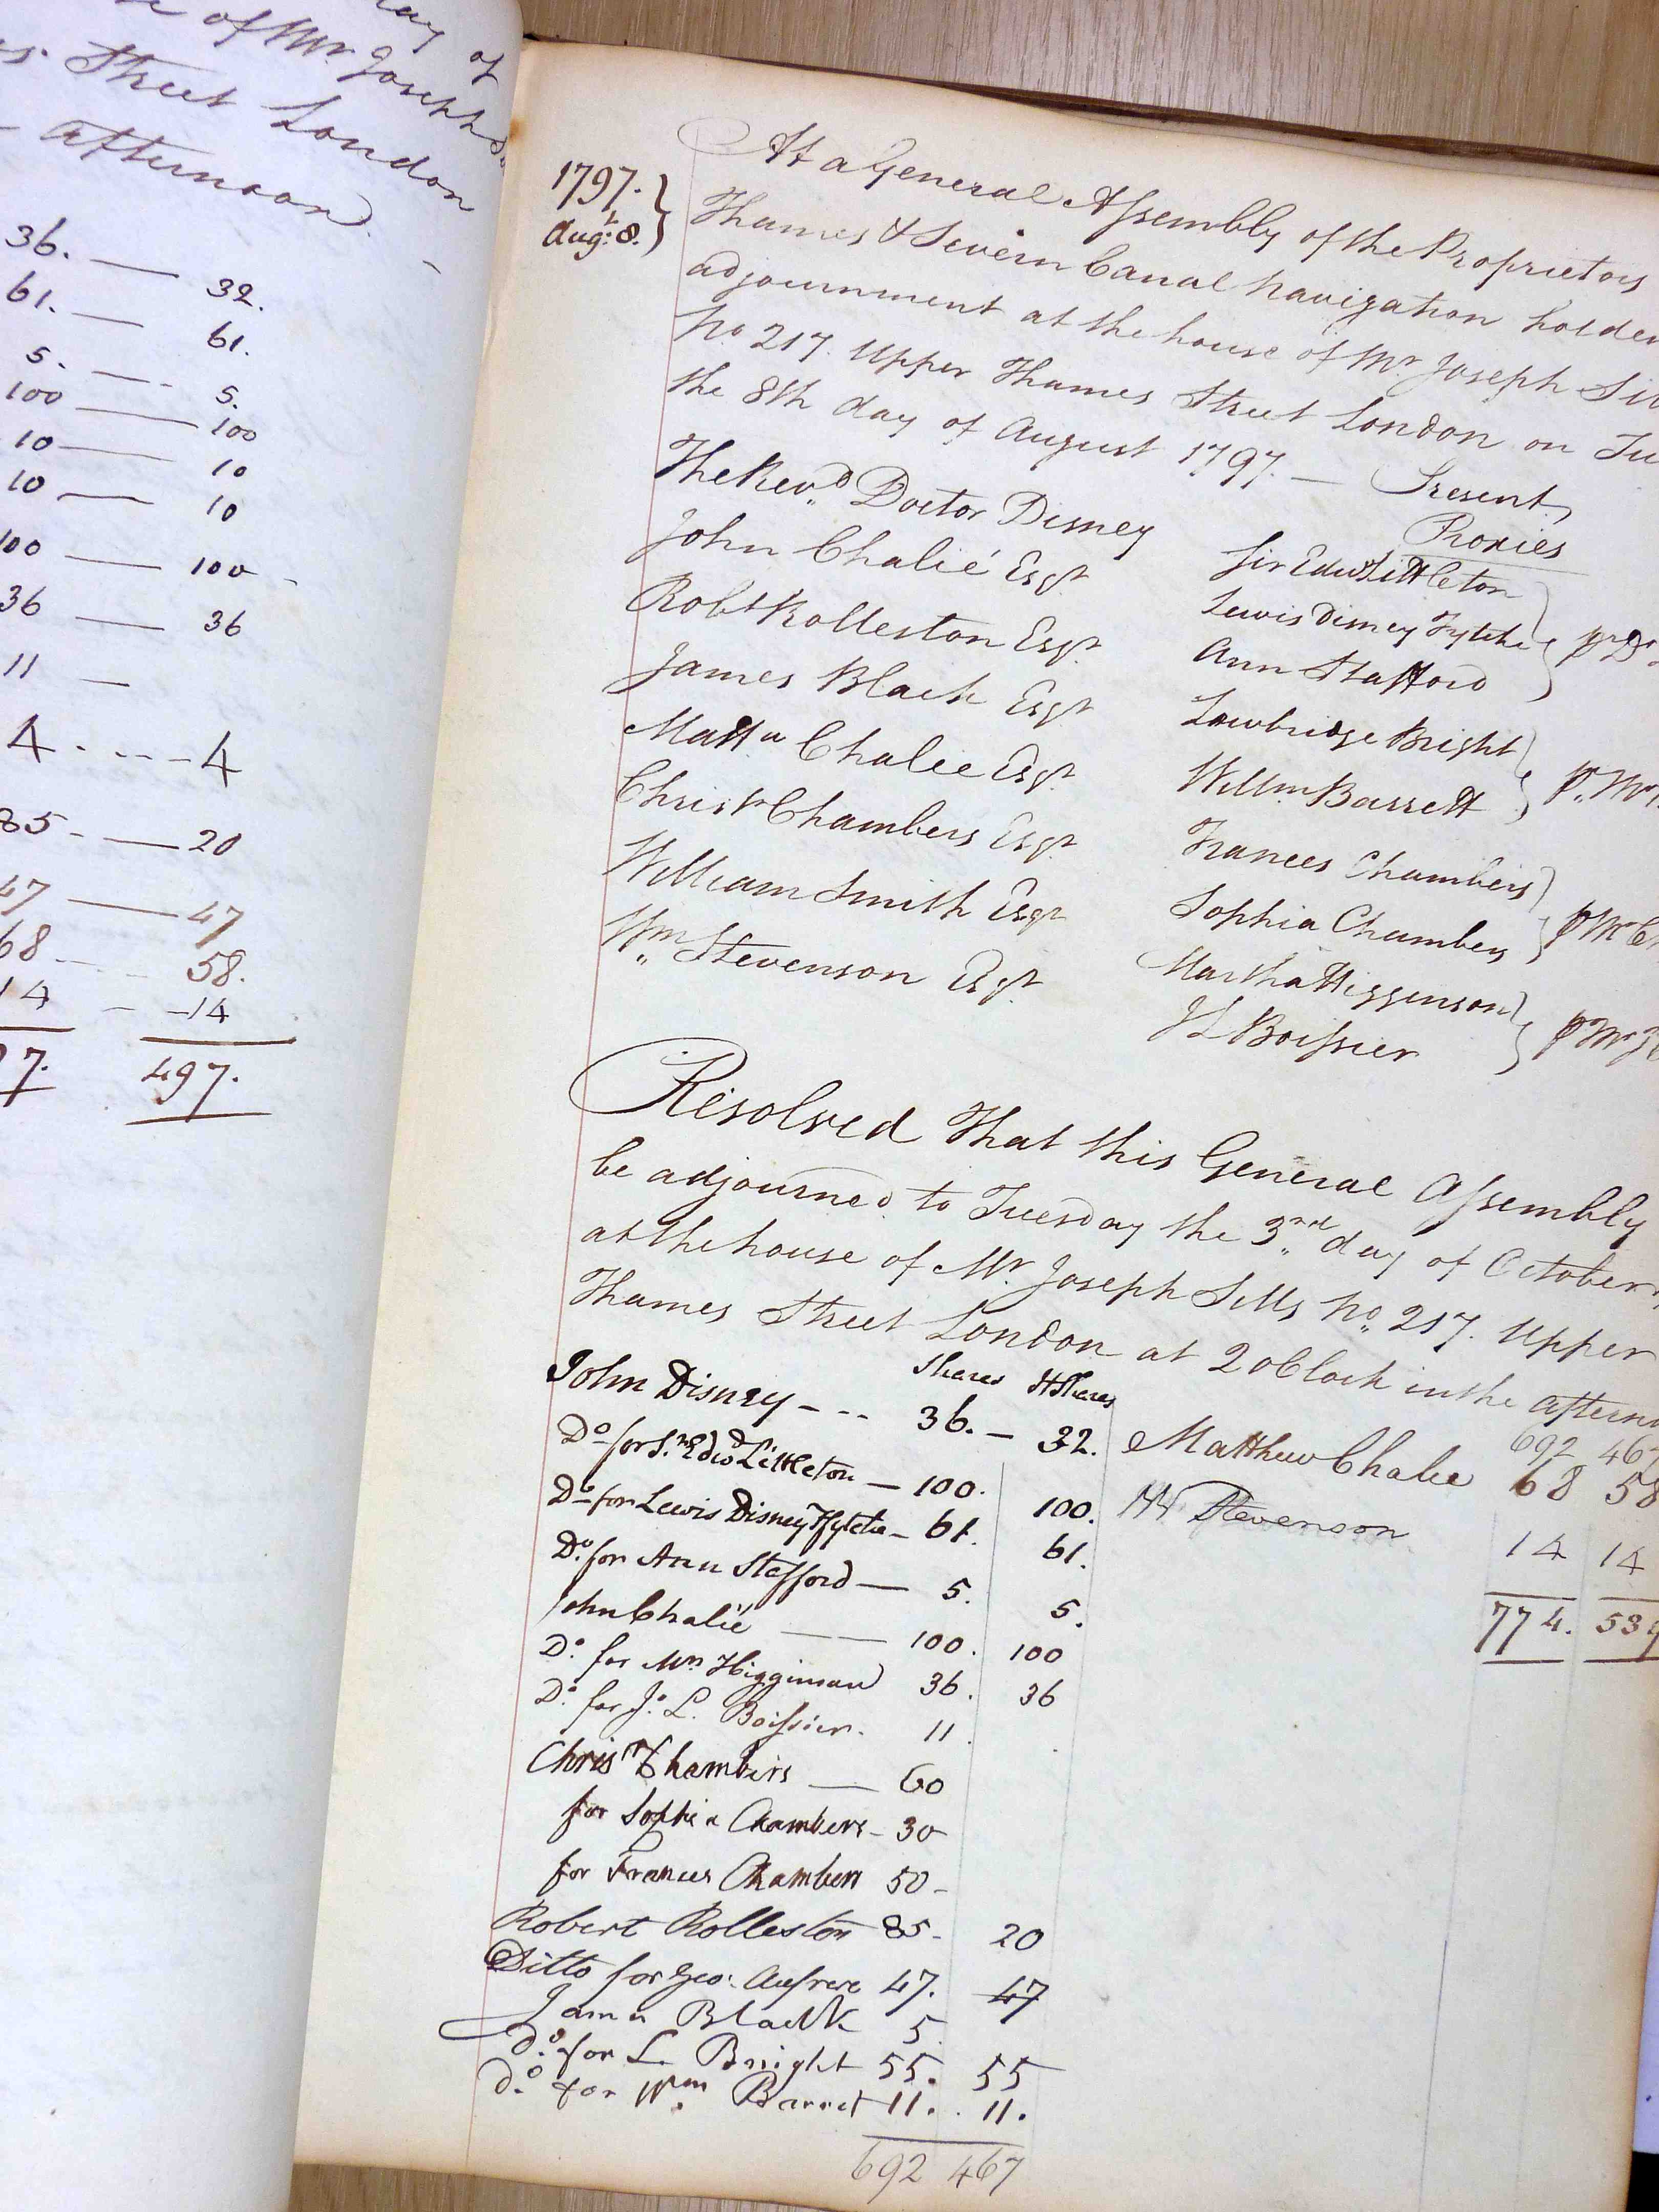 day of
of Mr. Joseph
Street London
afternoon.
36. — 32.
61. — 61.
5. — 5.
100 — 100
10 — 10
10 — 10
100 — 100
36 — 36
11 —
4 - - - 4
85 - — 20
47 — 47
68 - - - 58.
14 - - 14
7. 497.
1797.
Augt. 8.
At a General Assembly of the Proprietors
Thames & Severn Canal Navigation holden
adjournment at the house of Mr Joseph
No 217. Upper Thames Street London on Tu
the 8th day of August 1797. — Present,
The Revd. Doctor Disney
John Chalié Esqr.
Robt Rolleston Esqr.
James Black Esqr
Mattw Chalie Esqr.
Christr Chambers Esqr.
William Smith Esqr
Wm Stevenson Esqr.
Proxies
Sir Edwd Littleton
Lewis Disney Fytche
Ann Stafford
Lowbridge Bright
Willm Barrett
Frances Chambers
Sophia Chambers
Martha Higgenson
J L Boissier
Resolved That this General Assembly
be adjourned to Tuesday the 3rd. day of October
at the house of Mr. Joseph Sills No. 217. Upper
Thames Street London at 2 oClock in the aftern
Shares HShares
John Disney - - - 36. — 32.
Do for Sr. Edwd Littleton — 100. 100.
Do for Lewis Disney Ffytche — 61. 61.
Do. for Ann Stafford — 5. 5.
John Chalié — 100. 100
Do. for Mrs Higginson 36. 36
Do. for J. L. Boissier. 11.
Chrisr Chambers — 60
for Sophia Chambers - 30
for Frances Chambers 50 -
Robert Rolleston 85 - 20
Ditto for Geo: Aufrere 47. 47
James Black 5
Do. for L. Bright 55. 55
Do. for Wm Barret 11. 11.
692 467
692 467
Matthew Chalie 68 58
W Stevenson 14 14
774. 539